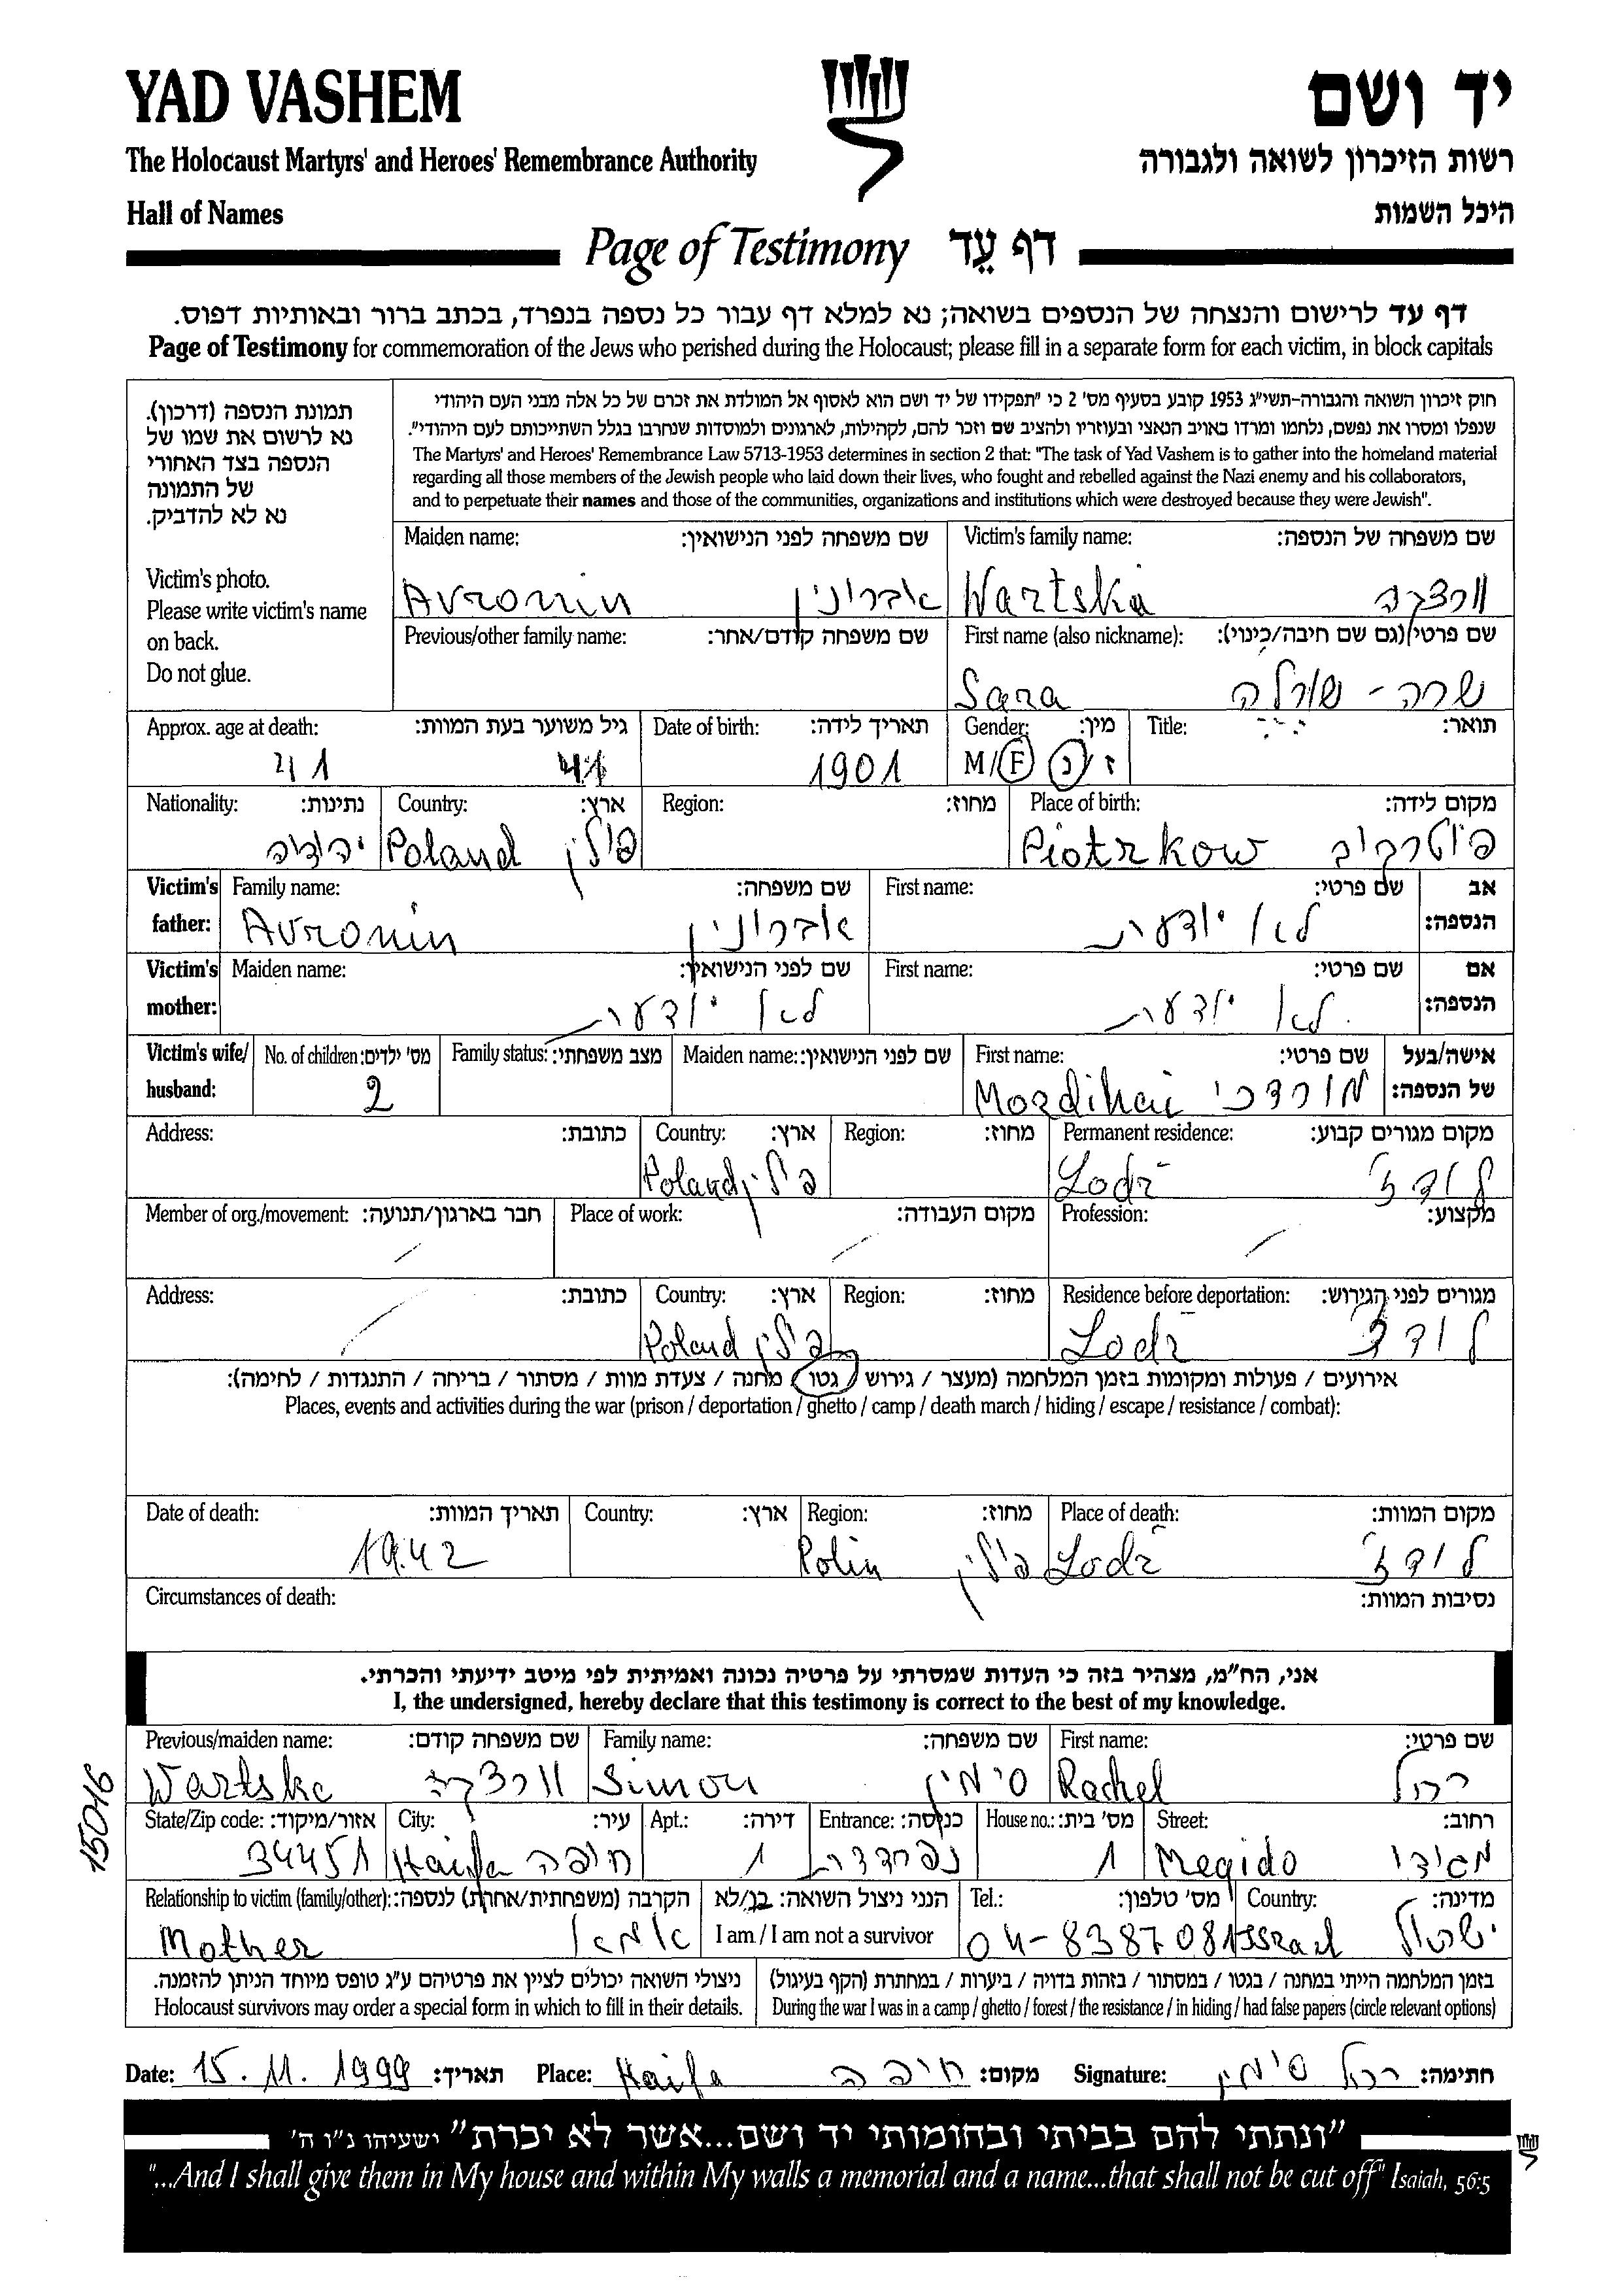 YAD VASHEM
יד ושם
The Holocaust Martyrs' and Heroes' Remembrance Authority
רשות הזיכרון לשואה ולגבורה
Hall of Names
היכל השמות
Page of Testimony דף עֵד
דף עד לרישום והנצחה של הנספים בשואה; נא למלא דף עבור כל נספה בנפרד, בכתב ברור ובאותיות דפוס.
Page of Testimony for commemoration of the Jews who perished during the Holocaust; please fill in a separate form for each victim, in block capitals
תמונת הנספה (דרכון).
נא לרשום את שמו של
הנספה בצד האחורי
של התמונה
נא לא להדביק.
Victim's photo.
Please write victim's name
on back.
Do not glue.
חוק זיכרון השואה והגבורה-תשי"ג 1953 קובע בסעיף מס' 2 כי "תפקידו של יד ושם הוא לאסוף אל המולדת את זכרם של כל אלה מבני העם היהודי
שנפלו ומסרו את נפשם, נלחמו ומרדו באויב הנאצי ובעוזריו ולהציב שם וזכר להם, לקהילות, לארגונים ולמוסדות שנחרבו בגלל השתייכותם לעם היהודי".
The Martyrs' and Heroes' Remembrance Law 5713-1953 determines in section 2 that: "The task of Yad Vashem is to gather into the homeland material
regarding all those members of the Jewish people who laid down their lives, who fought and rebelled against the Nazi enemy and his collaborators,
and to perpetuate their names and those of the communities, organizations and institutions which were destroyed because they were Jewish".
Maiden name: שם משפחה לפני הנישואין: Victim's family name: שם משפחה של הנספה:
Avronin אברונין Wartska וורצקה
Previous/other family name: שם משפחה קודם/אחר: First name (also nickname): שם פרטי (גם שם חיבה/כינוי):
Sara שרה - שורלה
Approx. age at death: גיל משוער בעת המוות: Date of birth: תאריך לידה: Gender: מין: Title: תואר:
41 41 1901 M/F ז/נ
Nationality: נתינות: Country: ארץ: Region: מחוז: Place of birth: מקום לידה:
יהודיה Poland פולין Piotrkow פיוטרקוב
Victim's father: Family name: שם משפחה: First name: שם פרטי: אב הנספה:
Avronin אברונין לא יודעת
Victim's mother: Maiden name: שם לפני הנישואין: First name: שם פרטי: אם הנספה:
לא יודעת לא יודעת
Victim's wife/husband: No. of children: מס' ילדים: Family status: מצב משפחתי: Maiden name: שם לפני הנישואין: First name: שם פרטי: אישה/בעל של הנספה:
2 Mordihai מורדכי
Address: כתובת: Country: ארץ: Region: מחוז: Permanent residence: מקום מגורים קבוע:
Poland פולין Lodz לודז'
Member of org./movement: חבר בארגון/תנועה: Place of work: מקום העבודה: Profession: מקצוע:
Address: כתובת: Country: ארץ: Region: מחוז: Residence before deportation: מגורים לפני הגירוש:
Poland פולין Lodz לודז'
אירועים / פעולות ומקומות בזמן המלחמה (מעצר / גירוש / גטו / מחנה / צעדת מוות / מסתור / בריחה / התנגדות / לחימה):
Places, events and activities during the war (prison / deportation / ghetto / camp / death march / hiding / escape / resistance / combat):
Date of death: תאריך המוות: Country: ארץ: Region: מחוז: Place of death: מקום המוות:
1942 Polin פולין Lodz לודז'
Circumstances of death: נסיבות המוות:
אני, הח"מ, מצהיר בזה כי העדות שמסרתי על פרטיה נכונה ואמיתית לפי מיטב ידיעתי והכרתי.
I, the undersigned, hereby declare that this testimony is correct to the best of my knowledge.
Previous/maiden name: שם משפחה קודם: Family name: שם משפחה: First name: שם פרטי:
Wartska וורצקה Simon סימון Rachel רחל
15016
State/Zip code: אזור/מיקוד: City: עיר: Apt.: דירה: Entrance: כניסה: House no.: מס' בית: Street: רחוב:
34451 Haifa חיפה 1 נפרדת 1 Megido מגידו
Relationship to victim (family/other): הקרבה (משפחתית/אחרת) לנספה: הנני ניצול השואה: כן/לא Tel.: מס' טלפון: Country: מדינה:
Mother אמא I am / I am not a survivor 04-8387081 Israel ישראל
ניצולי השואה יכולים לציין את פרטיהם ע"ג טופס מיוחד הניתן להזמנה. בזמן המלחמה הייתי במחנה / בגטו / במסתור / בזהות בדויה / ביערות / במחתרת (הקף בעיגול)
Holocaust survivors may order a special form in which to fill in their details. During the war I was in a camp / ghetto / forest / the resistance / in hiding / had false papers (circle relevant options)
Date: 15.11.1999 תאריך: Place: Haifa חיפה מקום: Signature: רחל סימון חתימה:
"ונתתי להם בביתי ובחומותי יד ושם...אשר לא יכרת" ישעיהו נ"ו ה'
"...And I shall give them in My house and within My walls a memorial and a name...that shall not be cut off" Isaiah, 56:5